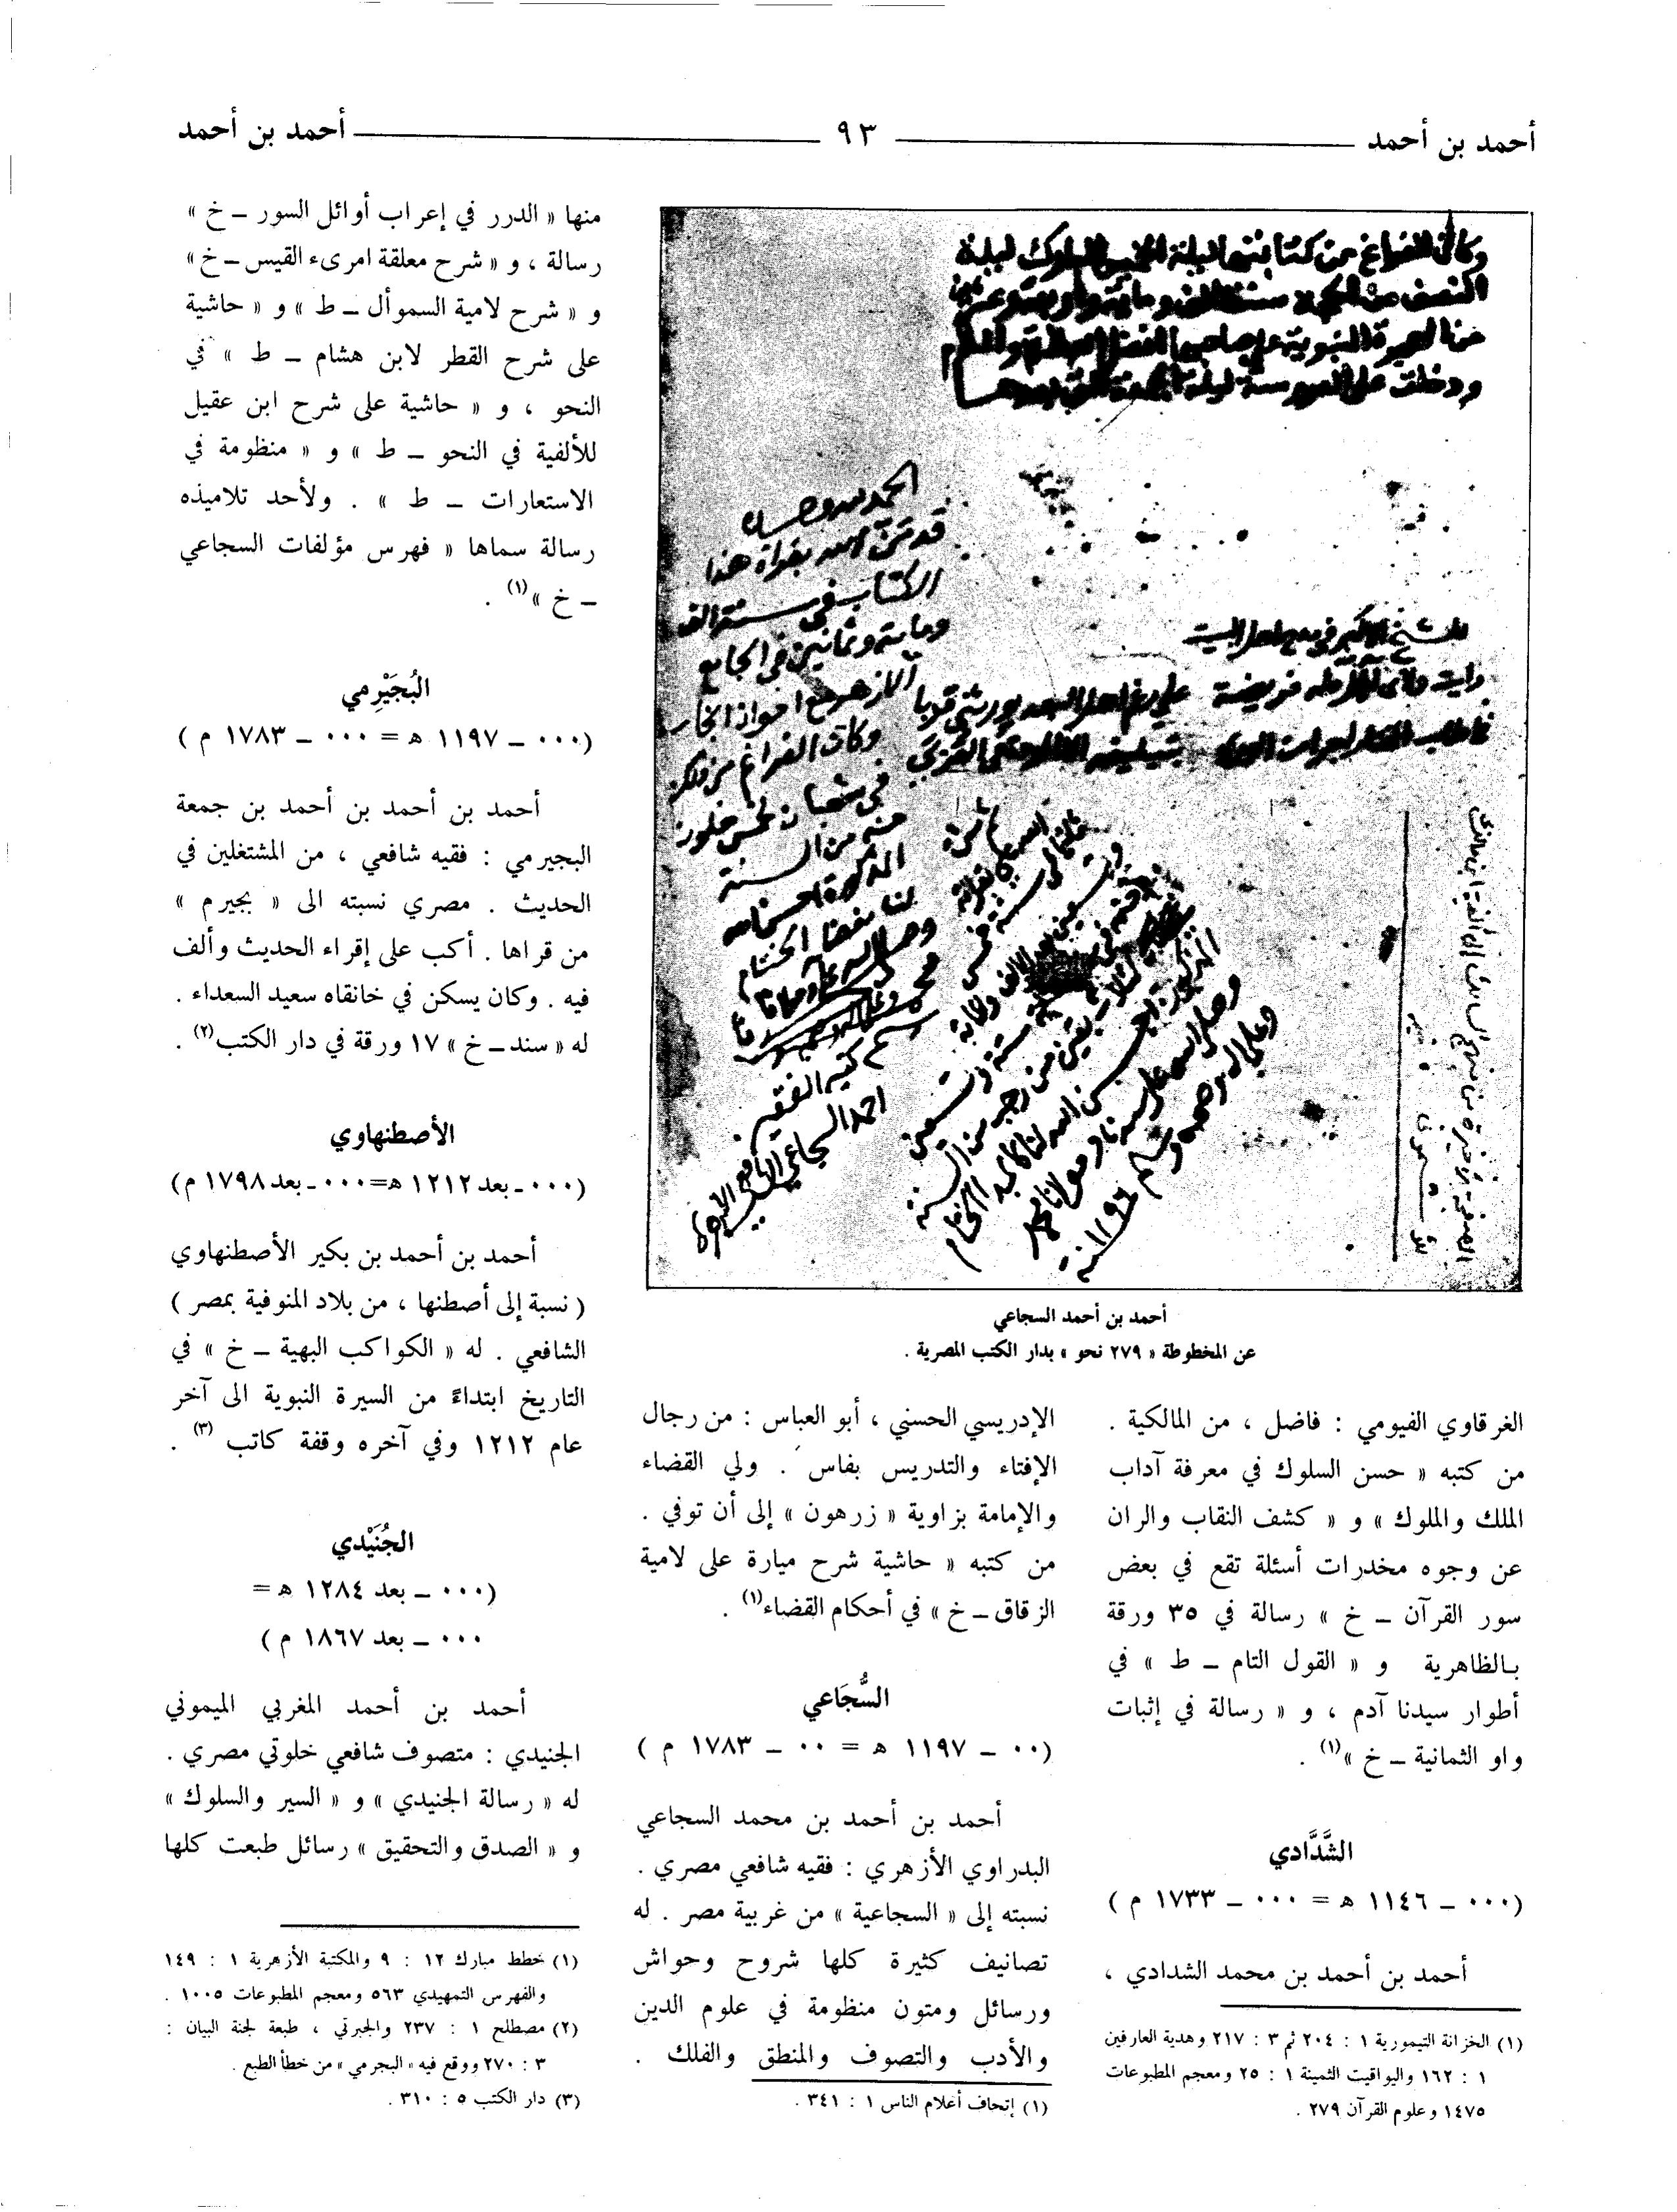 أحمد بن أحمد
٩٣
أحمد بن أحمد
الحمد لله وحده
قد من الله بقراءة هذا
الكتاب في سنة ألف
ومائة وثمانين في الجامع
الأزهر مع
وكان الفراغ من ذلك
في شعبان لخمس خلون
منه من السنة
المذكورة
كتبه الفقير
احمد السجاعي
أحمد بن أحمد السجاعي
عن المخطوطة « ٢٧٩ نحو » بدار الكتب المصرية .
الغرقاوي الفيومي : فاضل ، من المالكية .
من كتبه « حسن السلوك في معرفة آداب
الملك والملوك » و « كشف النقاب والران
عن وجوه مخدرات أسئلة تقع في بعض
سور القرآن ــ خ » رسالة في ٣٥ ورقة
بالظاهرية و « القول التام ــ ط » في
أطوار سيدنا آدم ، و « رسالة في إثبات
واو الثمانية ــ خ »(١) .
الشَّدَّادي
(٠٠٠ ــ ١١٤٦ ه = ٠٠٠ ــ ١٧٣٣ م )
أحمد بن أحمد بن محمد الشدادي ،
(١) الخزانة التيمورية ١ : ٢٠٤ ثم ٣ : ٢١٧ وهدية العارفين
١ : ١٦٢ واليواقيت الثمينة ١ : ٢٥ ومعجم المطبوعات
١٤٧٥ وعلوم القرآن ٢٧٩ .
الإدريسي الحسني ، أبو العباس : من رجال
الإفتاء والتدريس بفاس . ولي القضاء
والإمامة بزاوية « زرهون » إلى أن توفي .
من كتبه « حاشية شرح ميارة على لامية
الزقاق ــ خ » في أحكام القضاء(١) .
السُّجَاعي
(٠٠ ــ ١١٩٧ ه = ٠٠ ــ ١٧٨٣ م )
أحمد بن أحمد بن محمد السجاعي
البدراوي الأزهري : فقيه شافعي مصري .
نسبته إلى « السجاعية » من غربية مصر . له
تصانيف كثيرة كلها شروح وحواش
ورسائل ومتون منظومة في علوم الدين
والأدب والتصوف والمنطق والفلك .
(١) إتحاف أعلام الناس ١ : ٣٤١ .
منها « الدرر في إعراب أوائل السور ــ خ »
رسالة ، و « شرح معلقة امرىء القيس ــ خ »
و « شرح لامية السموأل ــ ط » و « حاشية
على شرح القطر لابن هشام ــ ط » في
النحو ، و « حاشية على شرح ابن عقيل
للألفية في النحو ــ ط » و « منظومة في
الاستعارات ــ ط » . ولأحد تلاميذه
رسالة سماها « فهرس مؤلفات السجاعي
ــ خ »(١) .
البُجَيْرِمي
(٠٠٠ ــ ١١٩٧ ه = ٠٠٠ ــ ١٧٨٣ م )
أحمد بن أحمد بن أحمد بن جمعة
البجيرمي : فقيه شافعي ، من المشتغلين في
الحديث . مصري نسبته الى « بجيرم »
من قراها . أكب على إقراء الحديث وألف
فيه . وكان يسكن في خانقاه سعيد السعداء .
له « سند ــ خ » ١٧ ورقة في دار الكتب(٢) .
الأصطنهاوي
(٠٠٠ ــ بعد ١٢١٢ ه=٠٠٠ ــ بعد ١٧٩٨ م)
أحمد بن أحمد بن بكير الأصطنهاوي
( نسبة إلى أصطنها ، من بلاد المنوفية بمصر )
الشافعي . له « الكواكب البهية ــ خ » في
التاريخ ابتداءً من السيرة النبوية الى آخر
عام ١٢١٢ وفي آخره وقفة كاتب (٣) .
الجُنَيْدي
(٠٠٠ ــ بعد ١٢٨٤ ه =
٠٠٠ ــ بعد ١٨٦٧ م )
أحمد بن أحمد المغربي الميموني
الجنيدي : متصوف شافعي خلوتي مصري .
له « رسالة الجنيدي » و « السير والسلوك »
و « الصدق والتحقيق » رسائل طبعت كلها
(١) خطط مبارك ١٢ : ٩ والمكتبة الأزهرية ١ : ١٤٩
والفهرس التمهيدي ٥٦٣ ومعجم المطبوعات ١٠٠٥ .
(٢) مصطلح ١ : ٢٣٧ والجبرتي ، طبعة لجنة البيان :
٣ : ٢٧٠ ووقع فيه « البجرمي » من خطأ الطبع .
(٣) دار الكتب ٥ : ٣١٠ .